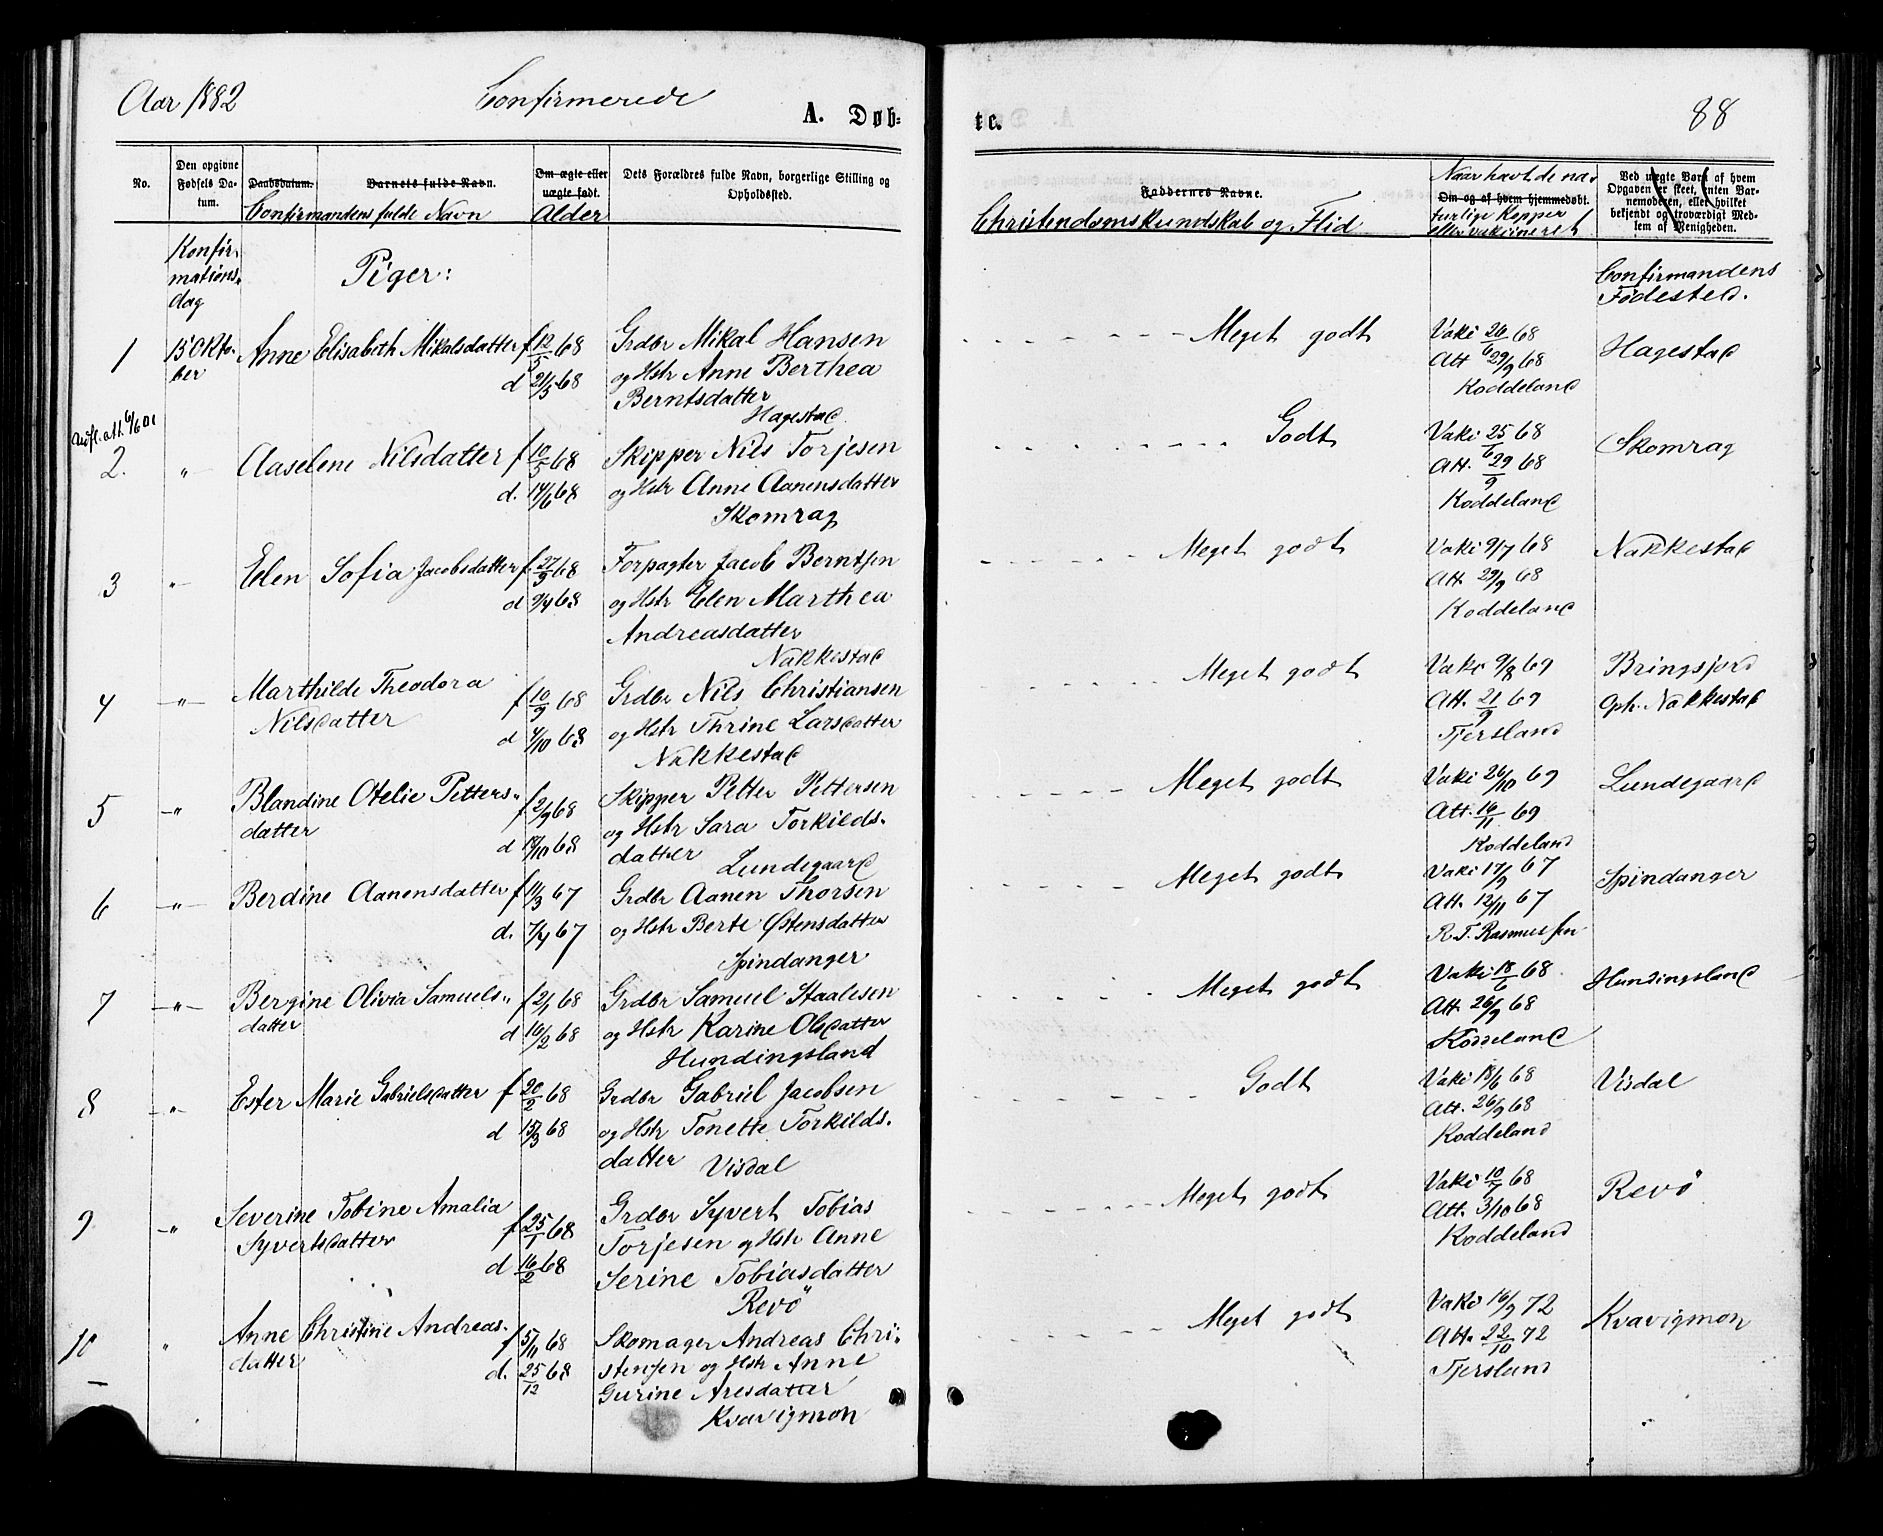 Aar 1882 Confirmerede A. Døb-
No.
Den opgivne Fødsels Da-tum.
Daabsdatum.
Barnets fulde Navn.
Confirmandens fulde Navn
Om ægte eller uægte født.
Alder
Dets Forældres fulde Navn, borgerlige Stilling og Opholdssted.
Konfir-
mations-
dag
Piger:
1 15 Okto-
ber
Anne Elisabeth Mikalsdatter f 12/5 68
d 21/5 68
Grdbr Mikal Hansen
og Hstr Anne Berthea
Berntsdatter
Hagestad
Udfl. att. 6/6 01
2. " Aaselene Nilsdatter f 10/5 68
d. 14/6 68
Skipper Nils Torjesen
og Hstr Anne Aanensdatter
Skomrag
3 " Elen Sofia Jacobsdatter f. 27/9 68
d
Forpagter Jacob Berntsen
og Hstr Elen Marthea
Andreasdatter
Nakkestad
4 " Marthilde Theodora
Nilsdatter f 10/9 68
d 4/10 68
Grdbr Nils Christiansen
og Hstr Thrine Larsdatter
Nakkestad
5 " Blandine Otelie Petters-
datter f 2/9 68
d 18/10 68
Skipper Petter Pettersen
og Hstr Sara Torkilds-
datter Lundegaard
6 " Berdine Aanensdatter f 11/3 67
d. 7/4 67
Grdbr Aanen Thorsen
og Hstr Berte Østensdatter
Spindanger
7 " Bergine Olivia Samuels-
datter f 2/1 68
d 16/2 68
Grdbr Samuel Staalesen
og Hstr Karine Olsdatter
Hundingsland
8 " Ester Marie Gabrielsdatter f 20/2 68
d 15/3 68
Grdbr Gabriel Jacobsen
og Hstr Tonette Torkilds-
datter Visdal
9 " Severine Tobine Amalia
Syvertsdatter f 25/1 68
d 16/2 68
Grdbr Syvert Tobias
Torjesen og Hstr Anne
Serine Tobiasdatter
Revö
10 " Anne Christine Andreas-
datter f 5/11 68
d. 25/12 68
Skomager Andreas Chri-
stensen og Hstr Anne
Gurine Aresdatter
Kvavigmon
te. 88
Faddernes Navne.
Christendomskundskab og Flid
Naar havt de na-
Om og af hvem hjemmedøbt.
turlige Kopper
eller vakcineret
Ved uægte Børn af hvem Opgaven er skeet, enten Bar-nemoderen, eller hvilket bekjendt og troværdigt Med-lem af Menigheden.
Confirmandens
Fødested.
Meget godt Vaki 26/6 68
Att 29/9 68
Koddeland
Hagestad
Godt Vaki 25/6 68
Att. 29/9 68
Koddeland
Skomrag
Meget godt Vaki 9/7 68
Att. 29/9 68
Koddeland
Nakkestad
Meget godt Vaki 9/8 69
Att. 21/9 69
Tjersland
Bringsjord
Oph. Nakkestad
Meget godt Vaki 26/10 69
Att. 16/11 69
Koddeland
Lundegaard
Meget godt Vaki 17/9 67
Att. 12/11 67
R. T. Rasmussen
Spindanger
Meget godt Vaki 18/6 68
Att. 26/9 68
Koddeland
Hundingsland
Godt Vaki 18/6 68
Att. 26/9 68
Koddeland
Visdal
Meget godt Vaki 10/7 68
Att. 3/10 68
Koddeland
Revö
Meget godt Vaki 16/9 72
Att. 22/10 72
Tjersland
Kvavigmon